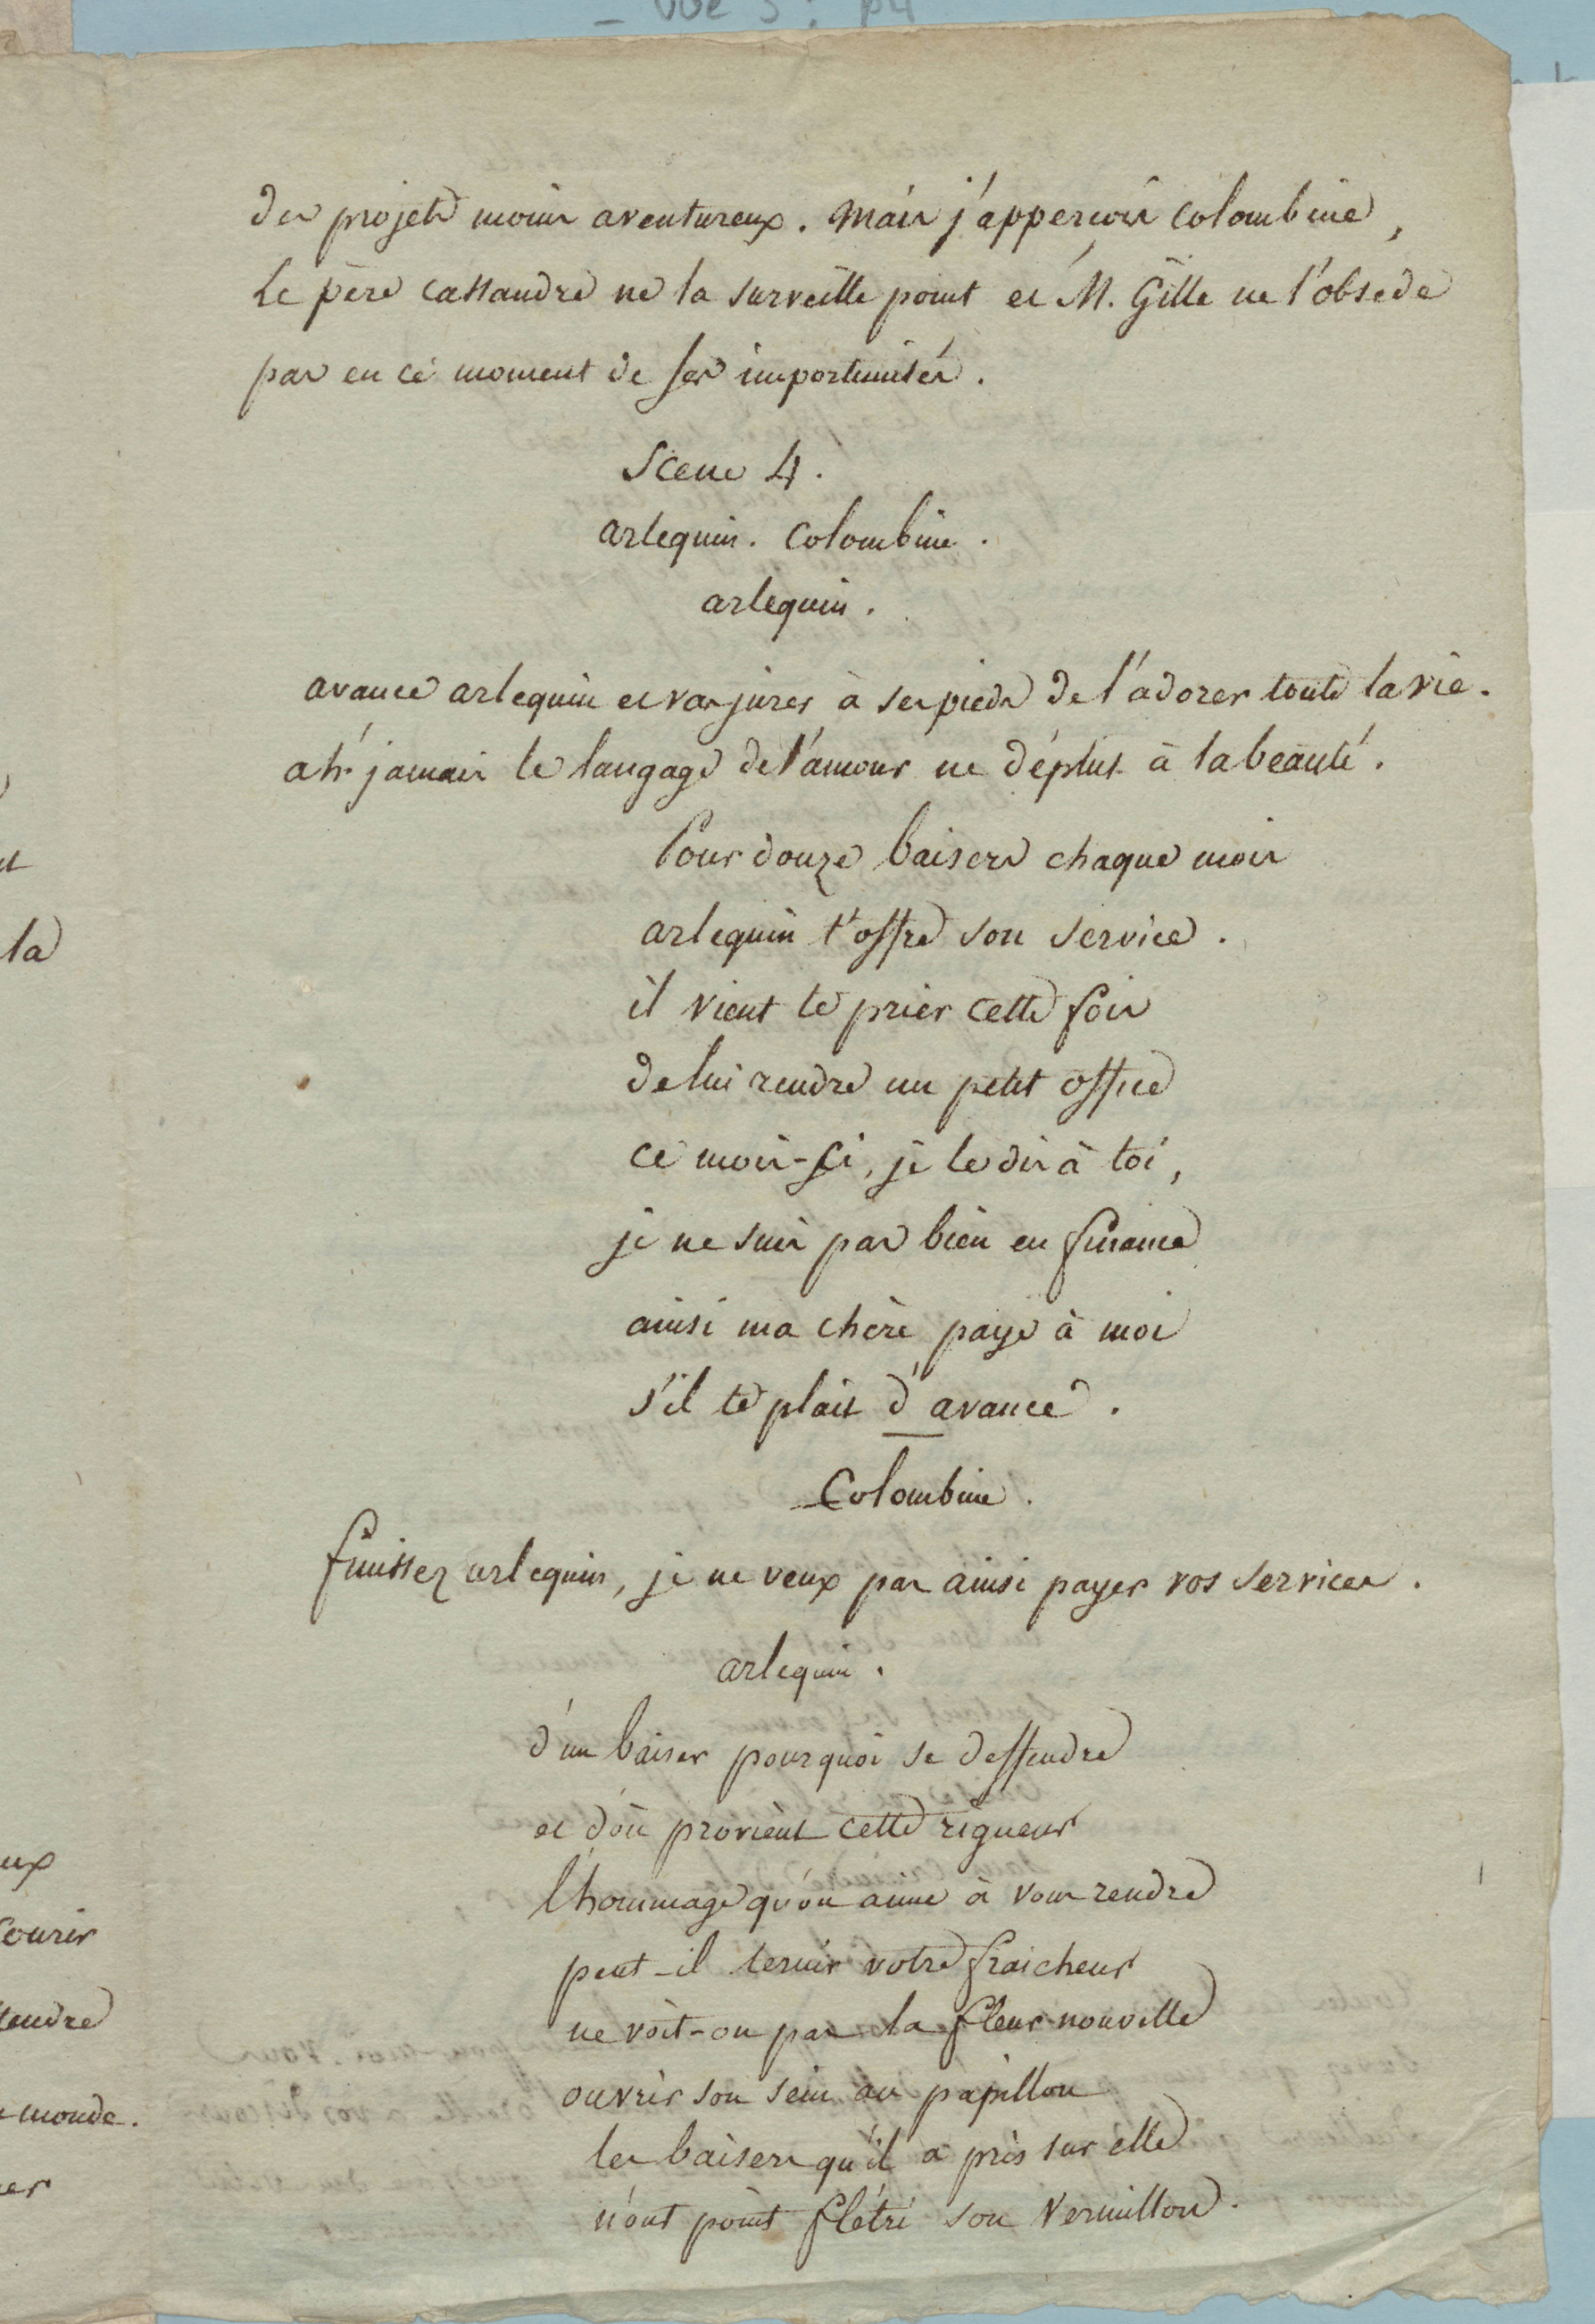 des projets moins aventureux. Mais j'apperçois colombine,
Le père cassandre ne la surveille point et M. Gille ne l'obsede
pas en ce moment de ses importunités.
Scene 4.
arlequin. Colombine.
arlequin.
avance arlequin et vas jurer à ses pieds de l'adorer toute la vie.
ah! jamais le langage de l'amour ne déplut à la beauté.
Pour douze baisers chaque mois
arlequin t'offre son service.
il vient te prier cette fois
de lui rendre un petit office
ce mois-ci, je le dis à toi,
je ne suis pas bien en finance
ainsi ma chère paye à moi
s'il te plait d'avance.
Colombine.
finissez arlequin, je ne veux pas ainsi payer vos services.
arlequin.
d'un baiser pourquoi se deffendre
et d'où provient cette rigueur
l'hommage qu'on aime à vous rendre
peut-il ternir votre fraicheur
ne voit-on pas la fleur nouvelle
ouvrir son sein au papillon
les baisers qu'il a pris sur elle
n'ont point flétri son vermillon.
la
courir
tendre
monde.